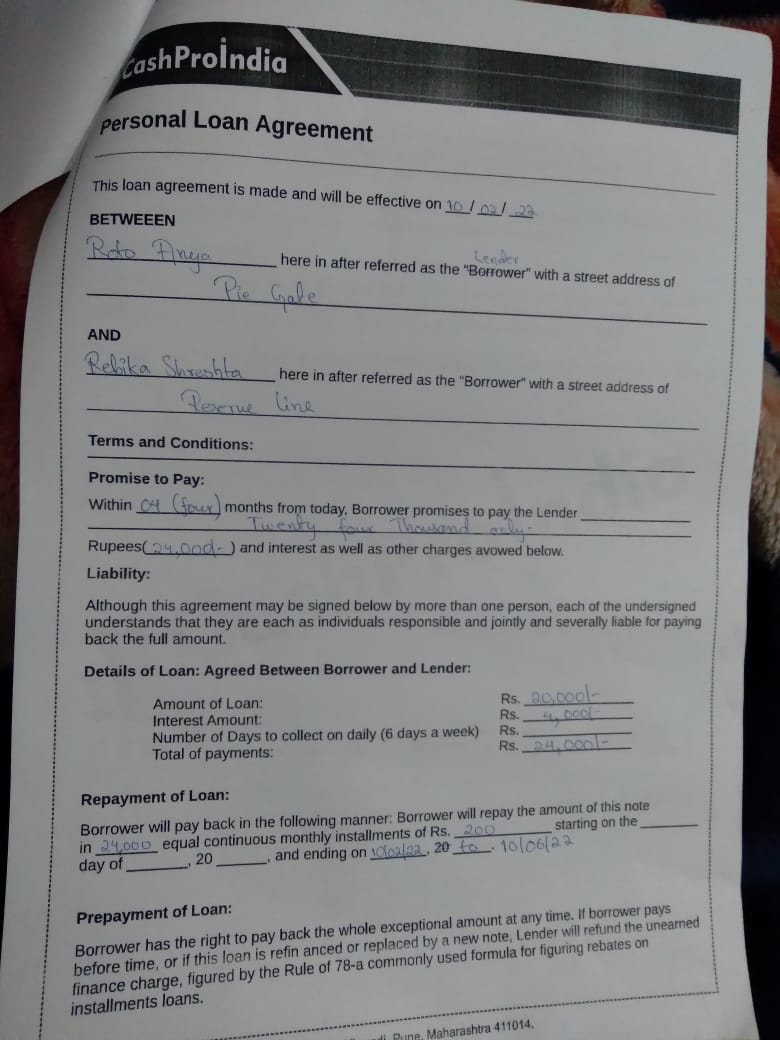 CashProIndia
Personal Loan Agreement
This loan agreement is made and will be effective on 10/02/22
BETWEEEN
Roto Anya here in after referred as the "Borrower" with a street address of
Lender
Pie Gale
AND
Rebika Shreshta here in after referred as the "Borrower" with a street address of
Reserve line
Terms and Conditions:
Promise to Pay:
Within 04 (four) months from today, Borrower promises to pay the Lender
Twenty four Thousand only-
Rupees(24,000/-) and interest as well as other charges avowed below.
Liability:
Although this agreement may be signed below by more than one person, each of the undersigned
understands that they are each as individuals responsible and jointly and severally liable for paying
back the full amount.
Details of Loan: Agreed Between Borrower and Lender:
Amount of Loan: Rs. 20,000/-
Interest Amount: Rs. 4,000/-
Number of Days to collect on daily (6 days a week) Rs.
Total of payments: Rs. 24,000/-
Repayment of Loan:
Borrower will pay back in the following manner: Borrower will repay the amount of this note
in 24,000 equal continuous monthly installments of Rs. 200 starting on the
day of , 20 , and ending on 10/02/22, 20 to. 10/06/22
Prepayment of Loan:
Borrower has the right to pay back the whole exceptional amount at any time. If borrower pays
before time, or if this loan is refin anced or replaced by a new note, Lender will refund the unearned
finance charge, figured by the Rule of 78-a commonly used formula for figuring rebates on
installments loans.
Pune, Maharashtra 411014.